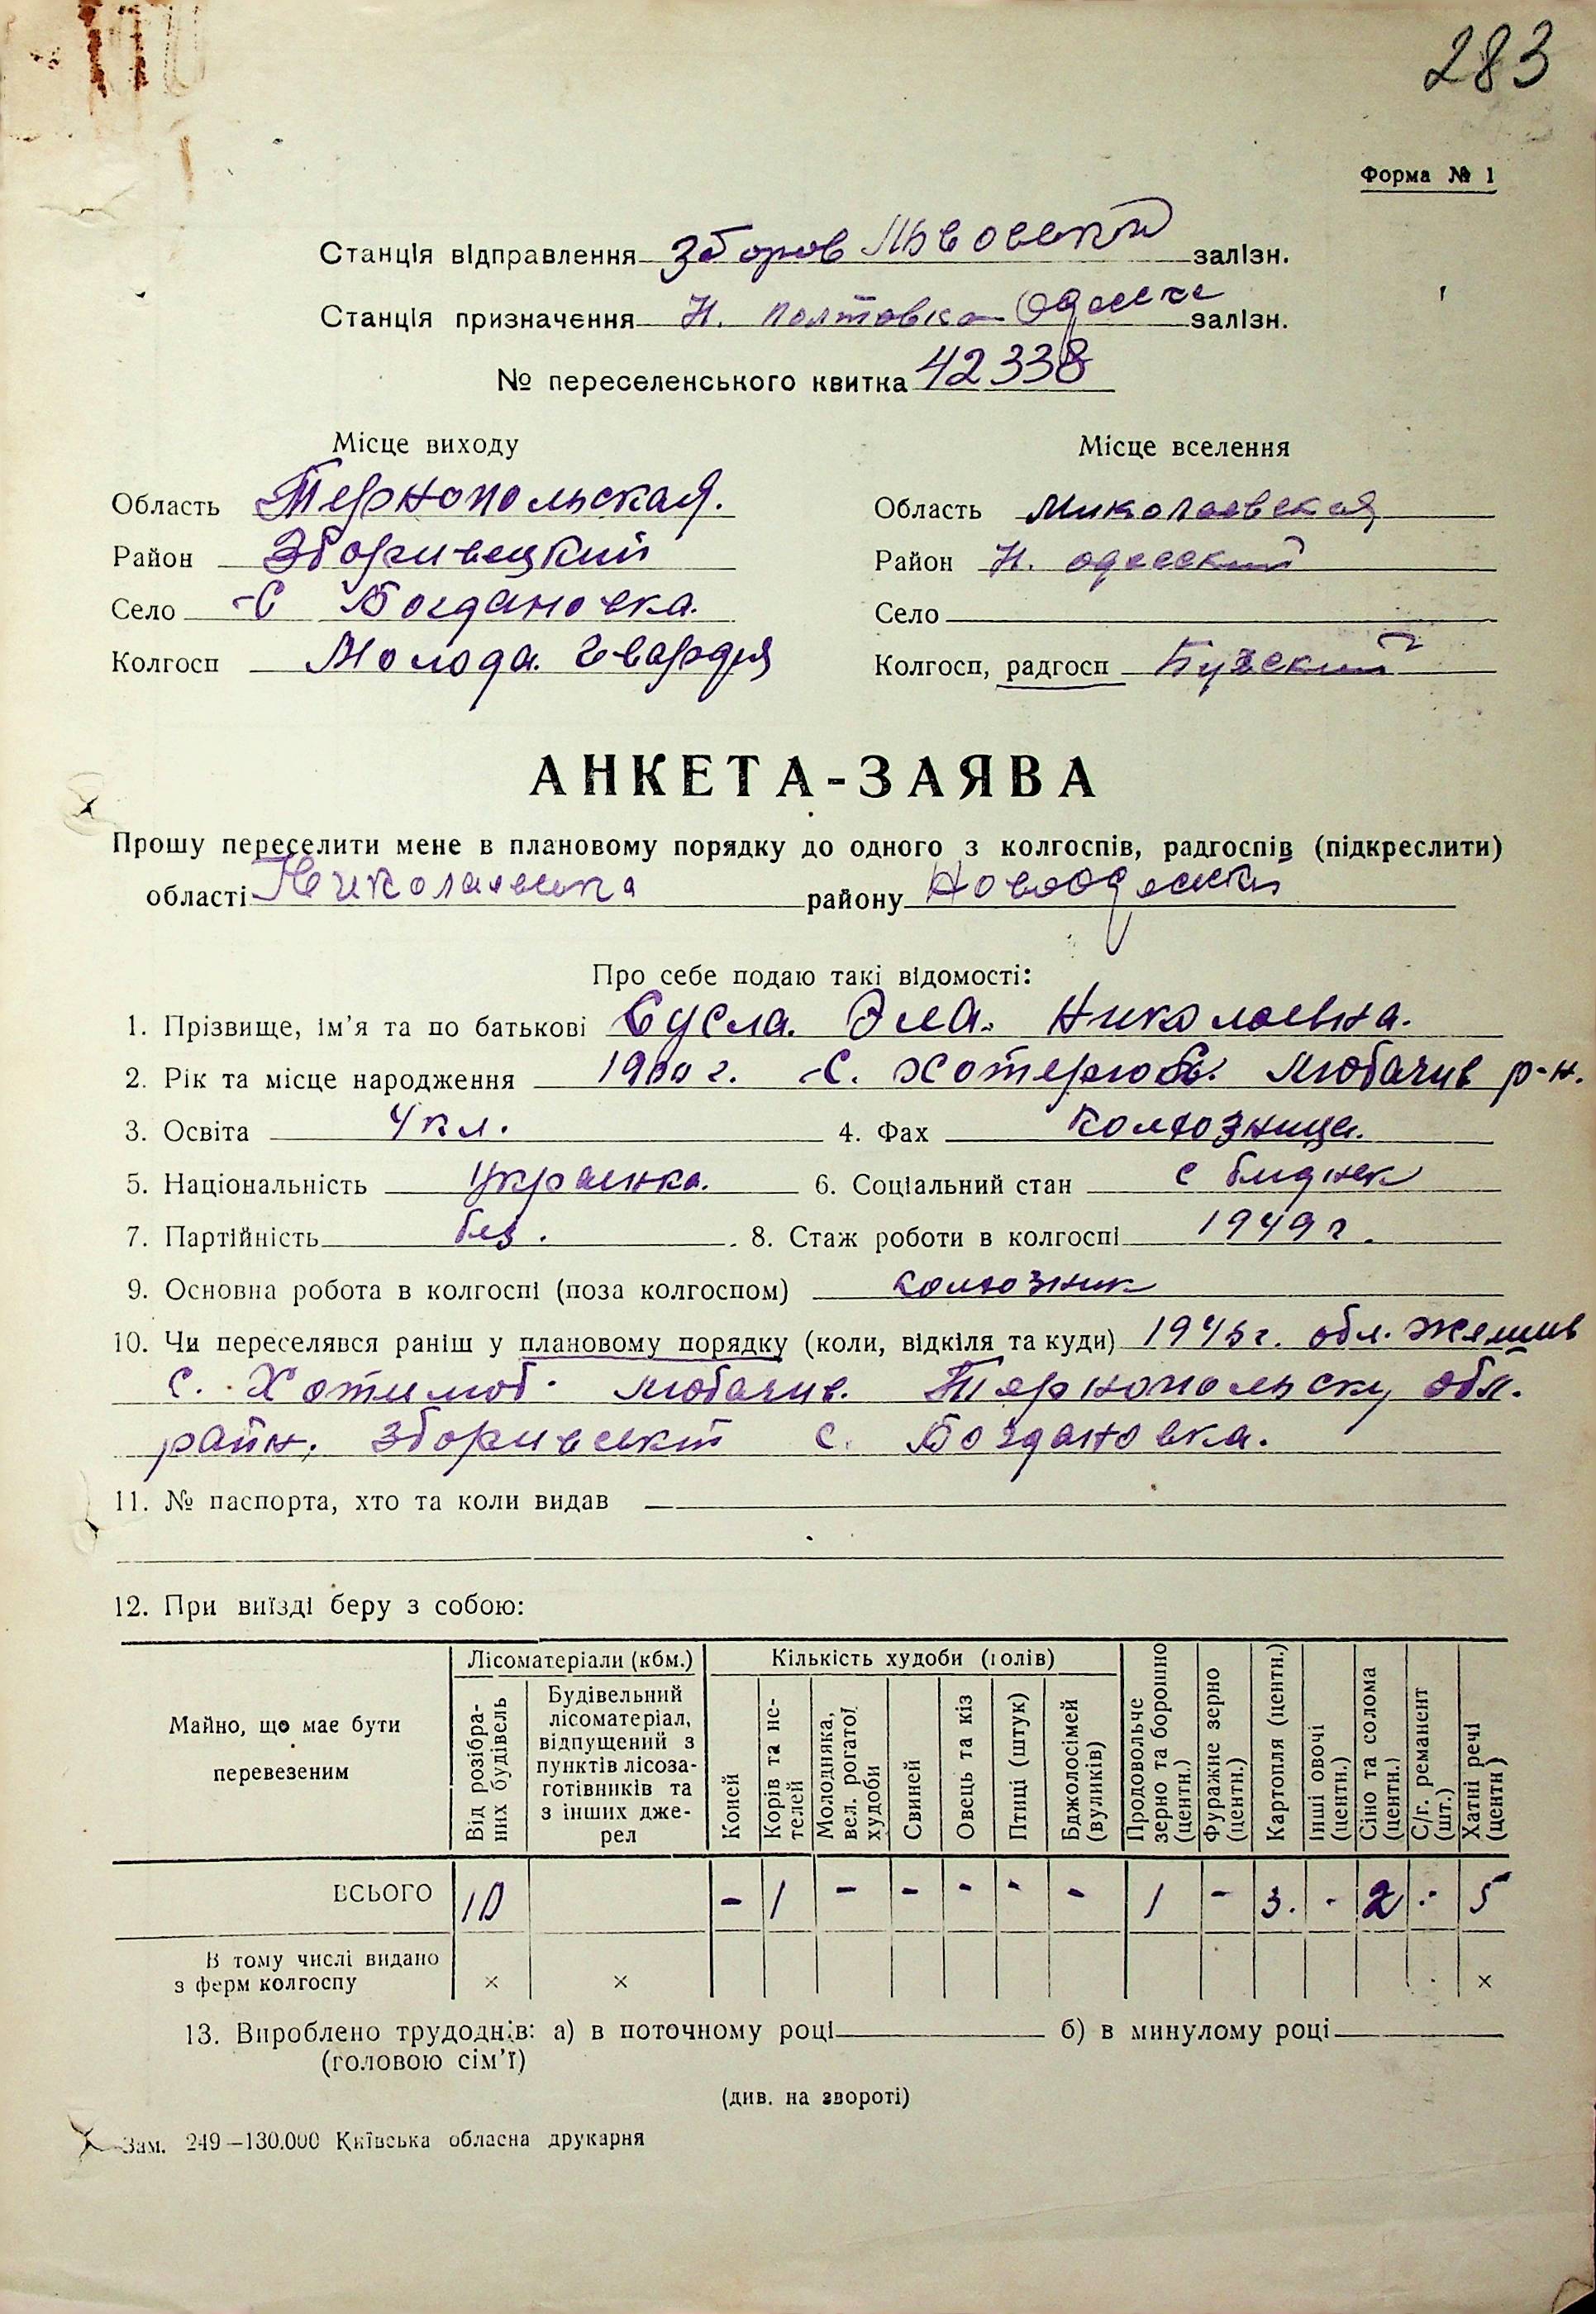 283
Форма № 1
Станція відправлення Зборов Львовский залізн.
Станція призначення Н. Полтовка Одесске залізн.
№ переселенського квитка 42338
Місце виходу
Область Тернопольская.
Район Зборивецкий
Село с Богдановка.
Колгосп Молода Гвардия
Місце вселення
Область Миколаевская
Район Н. одесский
Село
Колгосп, радгосп Бугский
АНКЕТА-ЗАЯВА
Прошу переселити мене в плановому порядку до одного з колгоспів, радгоспів (підкреслити)
області Николаевска району Новоодески
Про себе подаю такі відомості:
1. Прізвище, ім’я та по батькові Сусла. Николаевна.
2. Рік та місце народження 1900 г. с. Любачив р-н.
3. Освіта 4 кл. 4. Фах колхозница.
5. Національність Украинка. 6. Соціальний стан с бидняк
7. Партійність без. 8. Стаж роботи в колгоспі 1949 г.
9. Основна робота в колгоспі (поза колгоспом) колхозник
10. Чи переселявся раніш у плановому порядку (коли, відкіля та куди) 1945 г. обл. Жешив
с. Хотилюб. Любачив. Тернопольску обл.
район. Зборивский с. Богдановка.
11. № паспорта, хто та коли видав
12. При виїзді беру з собою:
Майно, що має бути перевезеним
Лісоматеріали (кбм.)
Від розібраних будівель
Будівельний лісоматеріал, відпущений з пунктів лісозаготівників та з інших джерел
Кількість худоби (голів)
Коней
Корів та нетелей
Молодняка, вел. рогатої худоби
Свиней
Овець та кіз
Птиці (штук)
Бджолосімей (вуликів)
Продовольче зерно та борошно (центн.)
Фуражне зерно (центн.)
Картопля (центн.)
Інші овочі (центн.)
Сіно та солома (центн.)
С/г. реманент (шт.)
Хатні речі (центн)
ВСЬОГО 10 - 1 - - - - - 1 - 3. - 2 - 5
В тому числі видано
з ферм колгоспу × × ×
13. Вироблено трудоднів: а) в поточному році б) в минулому році
(головою сім’ї)
(див. на звороті)
Зам. 249—130.000 Київська обласна друкарня